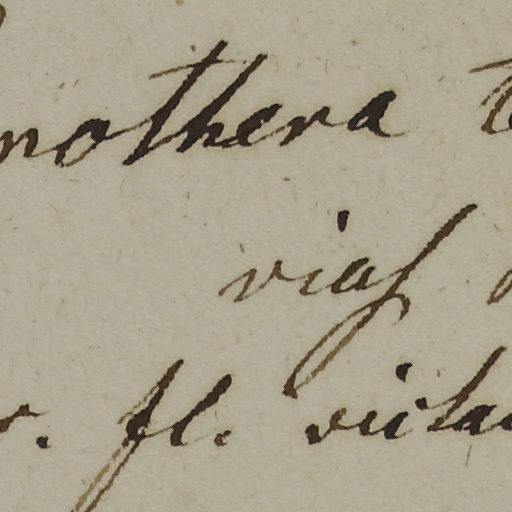 nothera
viaſ
r. fl. victa